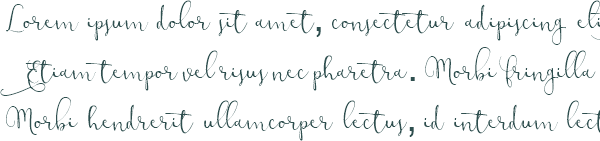 Lorem ipsum dolor sit amet, consectetur adipiscing eli
Etiam tempor vel risus nec pharetra. Morbi fringilla
Morbi hendrerit ullamcorper lectus, id interdum lect